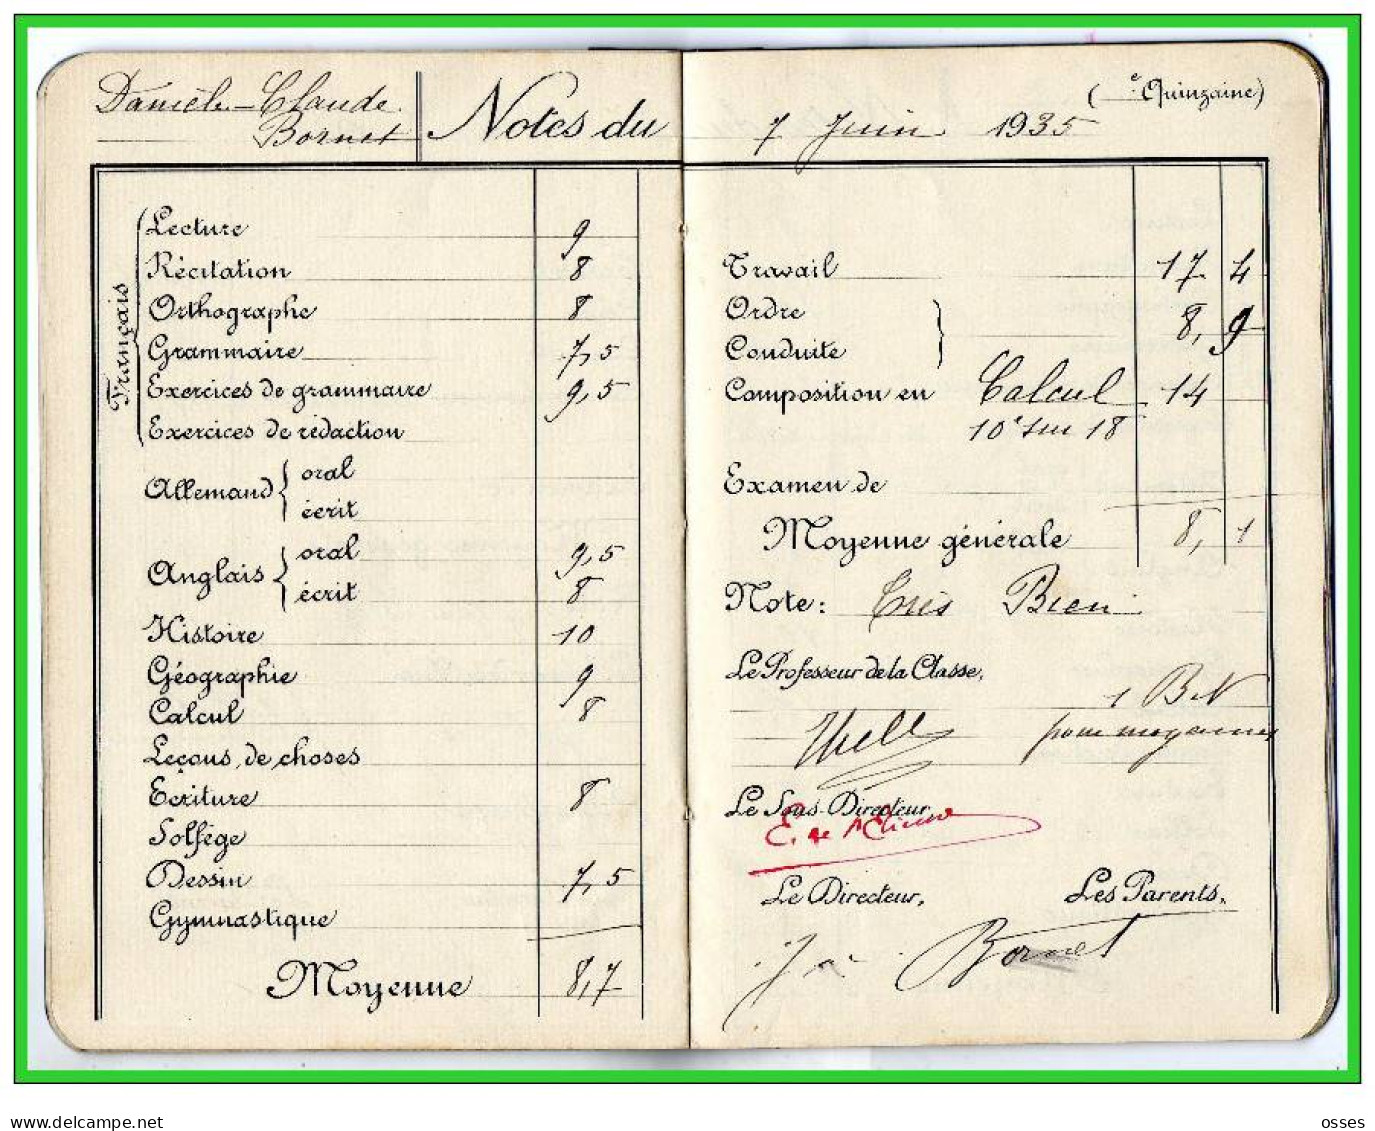 Danièle-Claude
Bornet
Notes du 7 Juin 1935 ( e Quinzaine)
Français
Lecture 9
Récitation 8
Orthographe 8
Grammaire 7,5
Exercices de grammaire 9,5
Exercices de rédaction
Allemand { oral
écrit
Anglais { oral 9,5
écrit 8
Histoire 10
Géographie 9
Calcul 8
Leçons de choses
Ecriture 8
Solfège
Dessin 7,5
Gymnastique
Moyenne 8,7
Travail 17 4
Ordre
Conduite } 8, 9
Composition en Calcul 14
10e sur 18
Examen de
Moyenne générale 8, 1
Note: Très Bien
Le Professeur de la Classe,
1 BN
pour moyennes
Le Sous-Directeur
E. de St Etienne
Le Directeur, Les Parents,
Bornet
delcampe.net osses